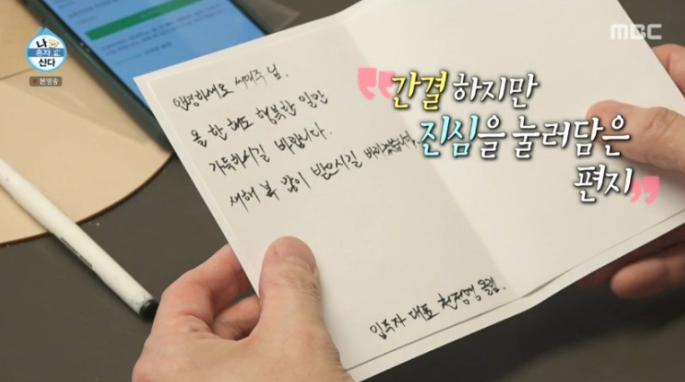 나
혼자
산다
본방송
MBC
간결하지만
진심을 눌러담은
편지
안녕하세요 세대주 님.
올 한 해도 행복한 일만
가득하시길 바랍니다.
새해 복 많이 받으시길 바라겠습니다.
입주자 대표 올림.